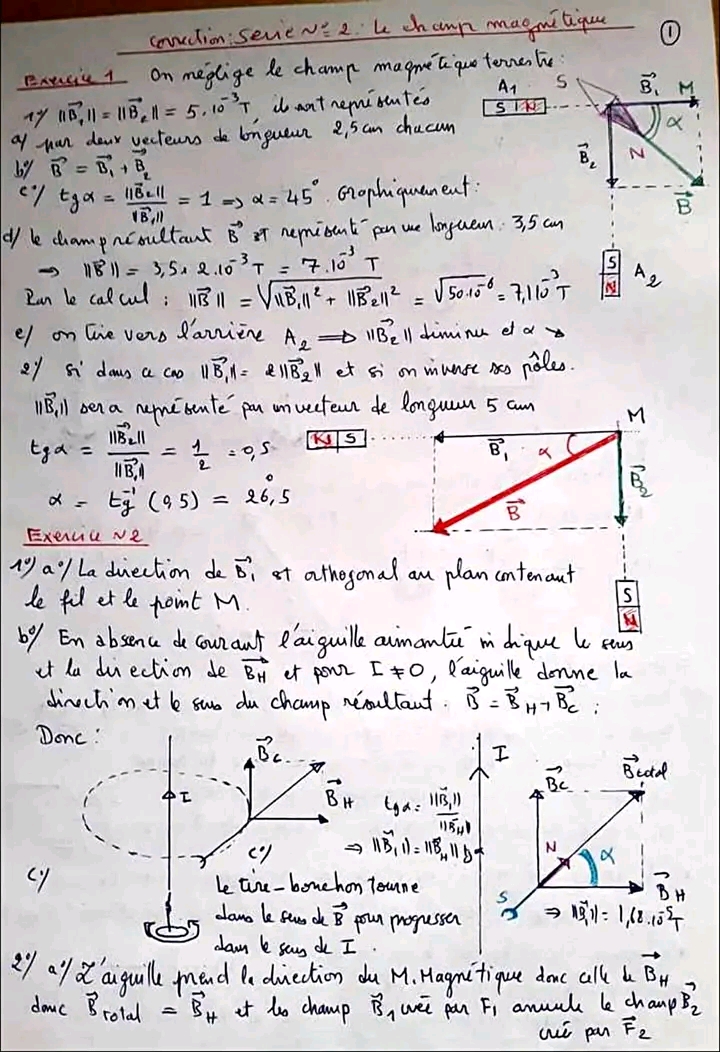 Correction: Serie N° 2: Le champ magnétique
①
Exercice 1 On néglige le champ magnétique terrestre:
1°/ ||B⃗₁|| = ||B⃗₂|| = 5.10⁻³T ils sont représentés
a/ par deux vecteurs de longueur 2,5 cm chacun
b°/ B⃗ = B⃗₁ + B⃗₂
c°/ tgα = ||B⃗₂||/||B⃗₁|| = 1 ⇒ α = 45°. Graphiquement:
d/ le champ résultant B⃗ est représenté par une longueur: 3,5 cm
⇒ ||B⃗|| = 3,5 . 2.10⁻³T = 7.10⁻³ T
Par le calcul: ||B⃗|| = √(||B⃗₁||² + ||B⃗₂||²) = √(50.10⁻⁶) = 7,1 10⁻³T
A₁
S N
S
B⃗₁
M
α
B⃗₂
N
B⃗
S
N
A₂
e/ on tire vers l'arrière A₂ ⇒ ||B⃗₂|| diminue et α ↘
2°/ si dans ce cas ||B⃗₁|| = 2||B⃗₂|| et si on inverse ses pôles.
||B⃗₁|| sera représenté par un vecteur de longueur 5 cm
tgα = ||B⃗₂||/||B⃗₁|| = 1/2 = 0,5
α = tg⁻¹(0,5) = 26,5°
N S
M
B⃗₁
α
B⃗₂
B⃗
S
N
Exercice N°2
1°/ a°/ La direction de B⃗₁ est orthogonal au plan contenant
le fil et le point M.
b°/ En absence de courant l'aiguille aimantée indique le sens
et la direction de B⃗H et pour I ≠ 0, l'aiguille donne la
direction et le sens du champ résultant. B⃗ = B⃗H + B⃗c ;
Donc:
B⃗c
I
B⃗H
c°/
tgα = ||B⃗₁||/||B⃗H||
⇒ ||B⃗₁|| = ||B⃗H|| tgα
I
B⃗c
B⃗total
N
α
S
B⃗H
⇒ ||B⃗₁|| = 1,68.10⁻⁵T
c°/
Le tire-bouchon tourne
dans le sens de B⃗ pour progresser
dans le sens de I.
2°/ a°/ L'aiguille prend la direction du M. Magnétique donc celle de B⃗H
donc B⃗total = B⃗H et les champ B⃗₁ créé par F₁ annule le champ B⃗₂
créé par F⃗₂